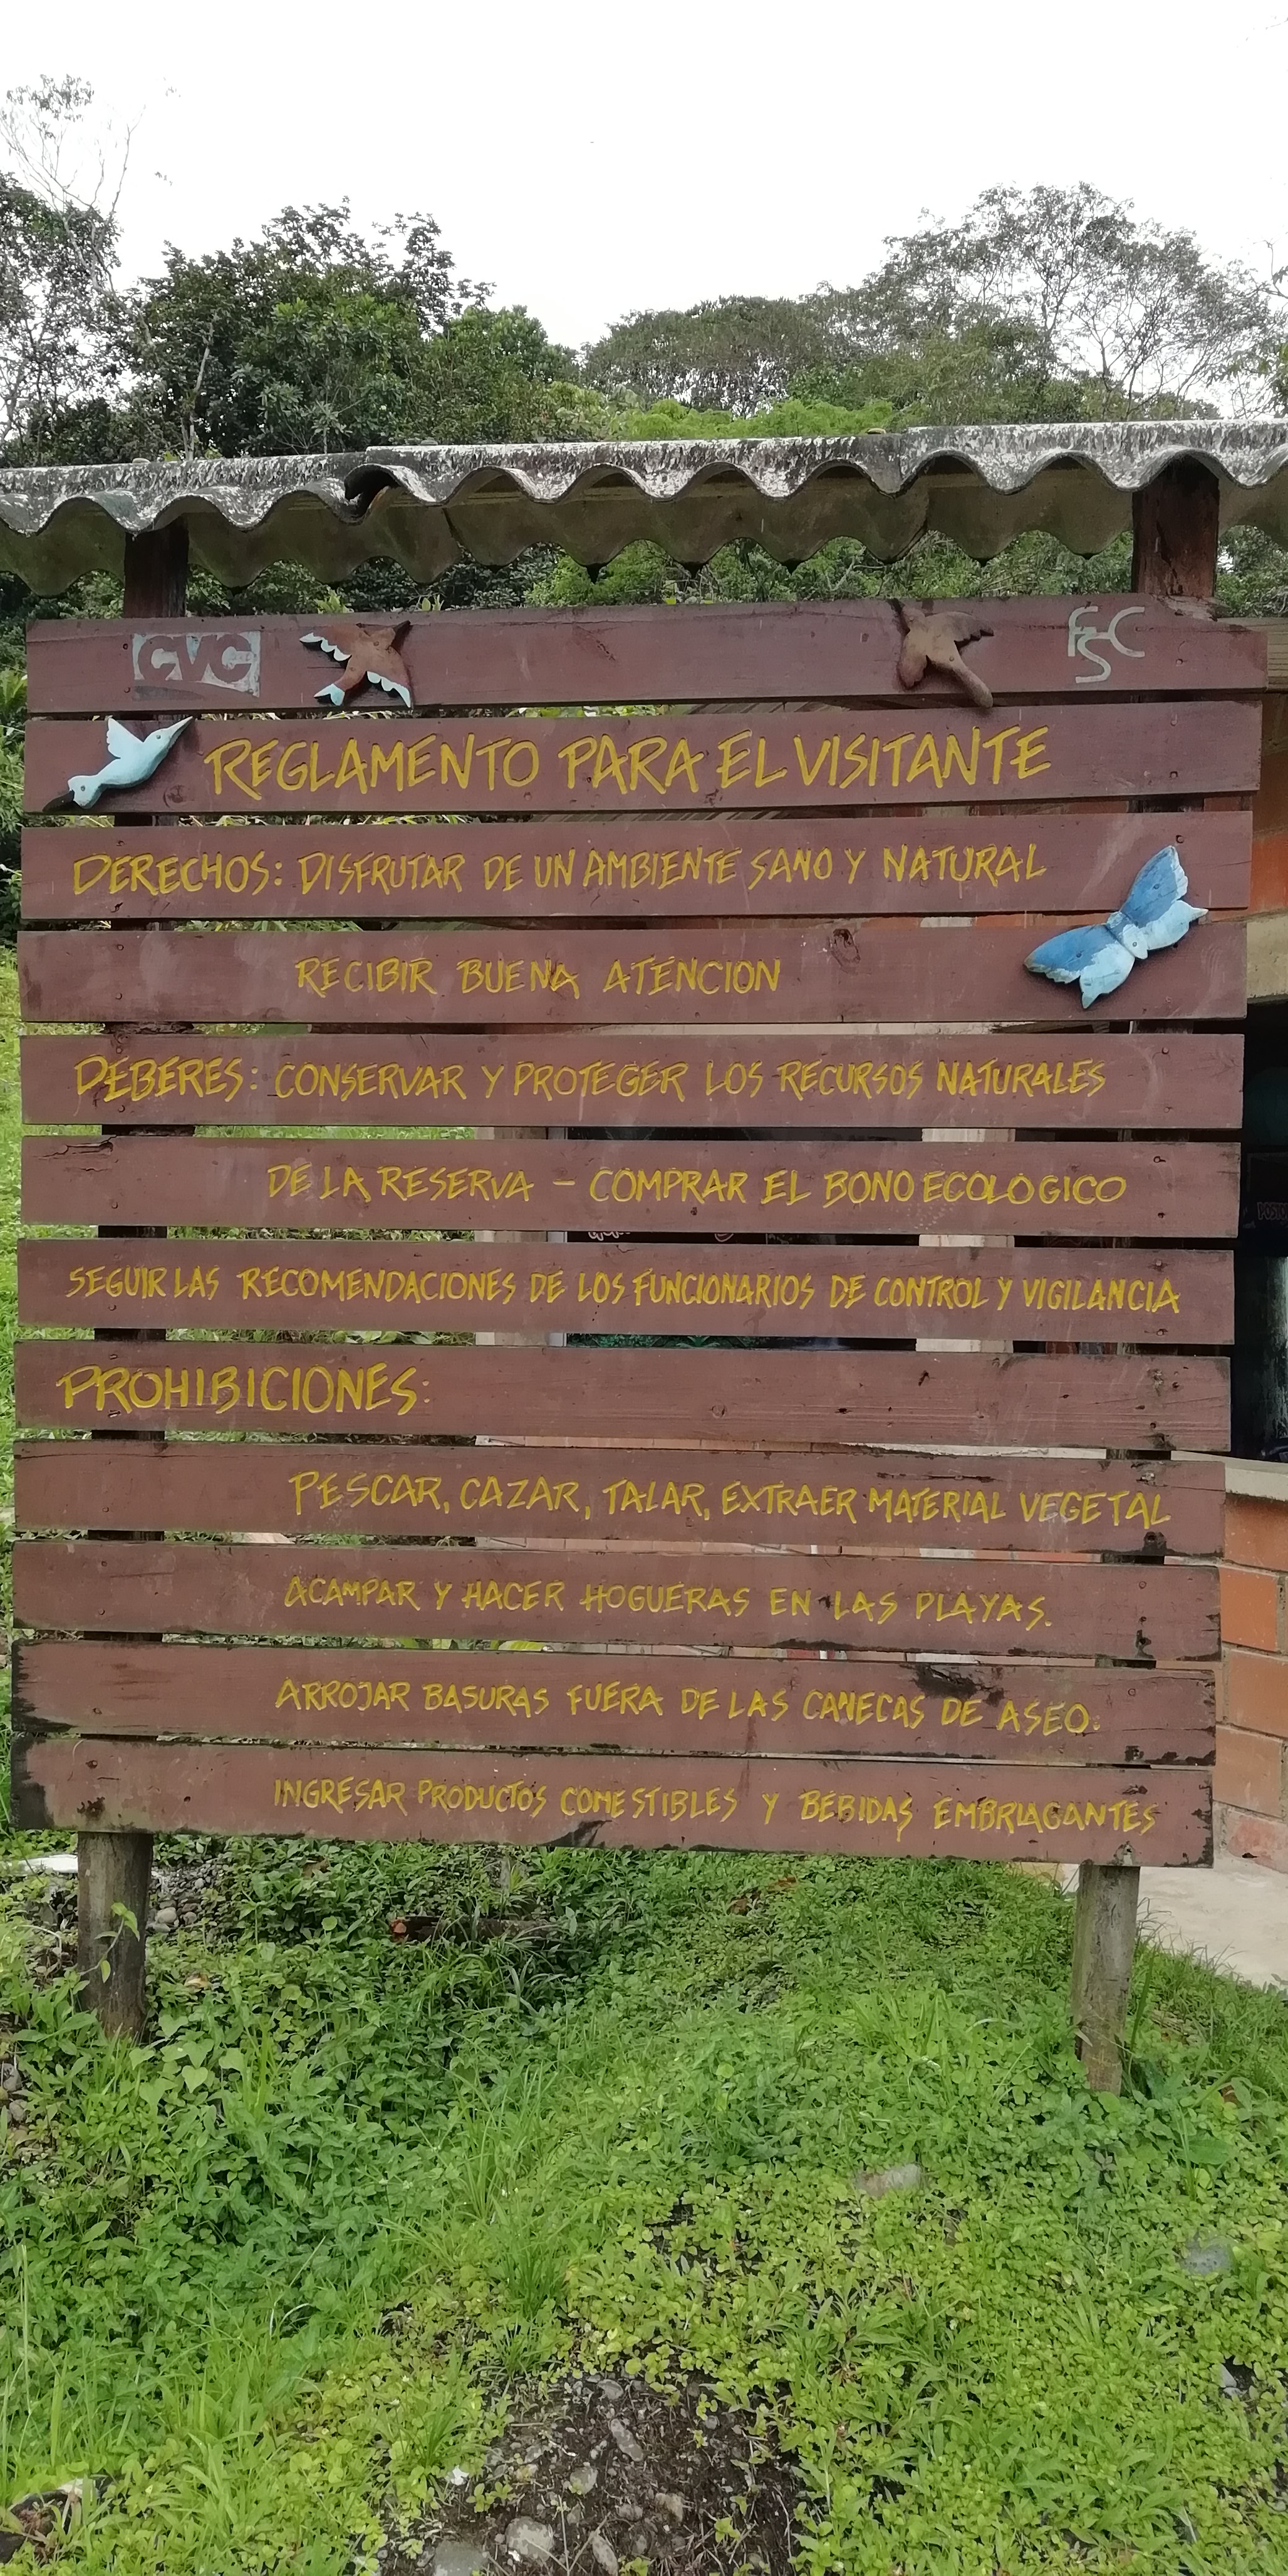 CVC
FSC
REGLAMENTO PARA EL VISITANTE
DERECHOS: DISFRUTAR DE UN AMBIENTE SANO Y NATURAL
RECIBIR BUENA ATENCION
DEBERES: CONSERVAR Y PROTEGER LOS RECURSOS NATURALES
DE LA RESERVA - COMPRAR EL BONO ECOLOGICO
SEGUIR LAS RECOMENDACIONES DE LOS FUNCIONARIOS DE CONTROL Y VIGILANCIA
PROHIBICIONES:
PESCAR, CAZAR, TALAR, EXTRAER MATERIAL VEGETAL
ACAMPAR Y HACER HOGUERAS EN LAS PLAYAS.
ARROJAR BASURAS FUERA DE LAS CANECAS DE ASEO.
INGRESAR PRODUCTOS COMESTIBLES Y BEBIDAS EMBRIAGANTES